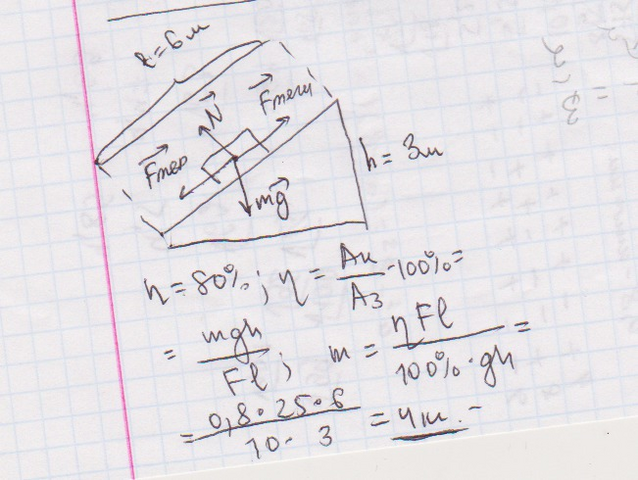 ℓ = 6 м
N
Fтяги
Fтер
h = 3м
mg
η = 80%; η = Aп/Aз · 100% =
= mgh/Fl; m = ηFl/100% · gh =
= 0,8 · 25 · 6/10 · 3 = 4 кг.